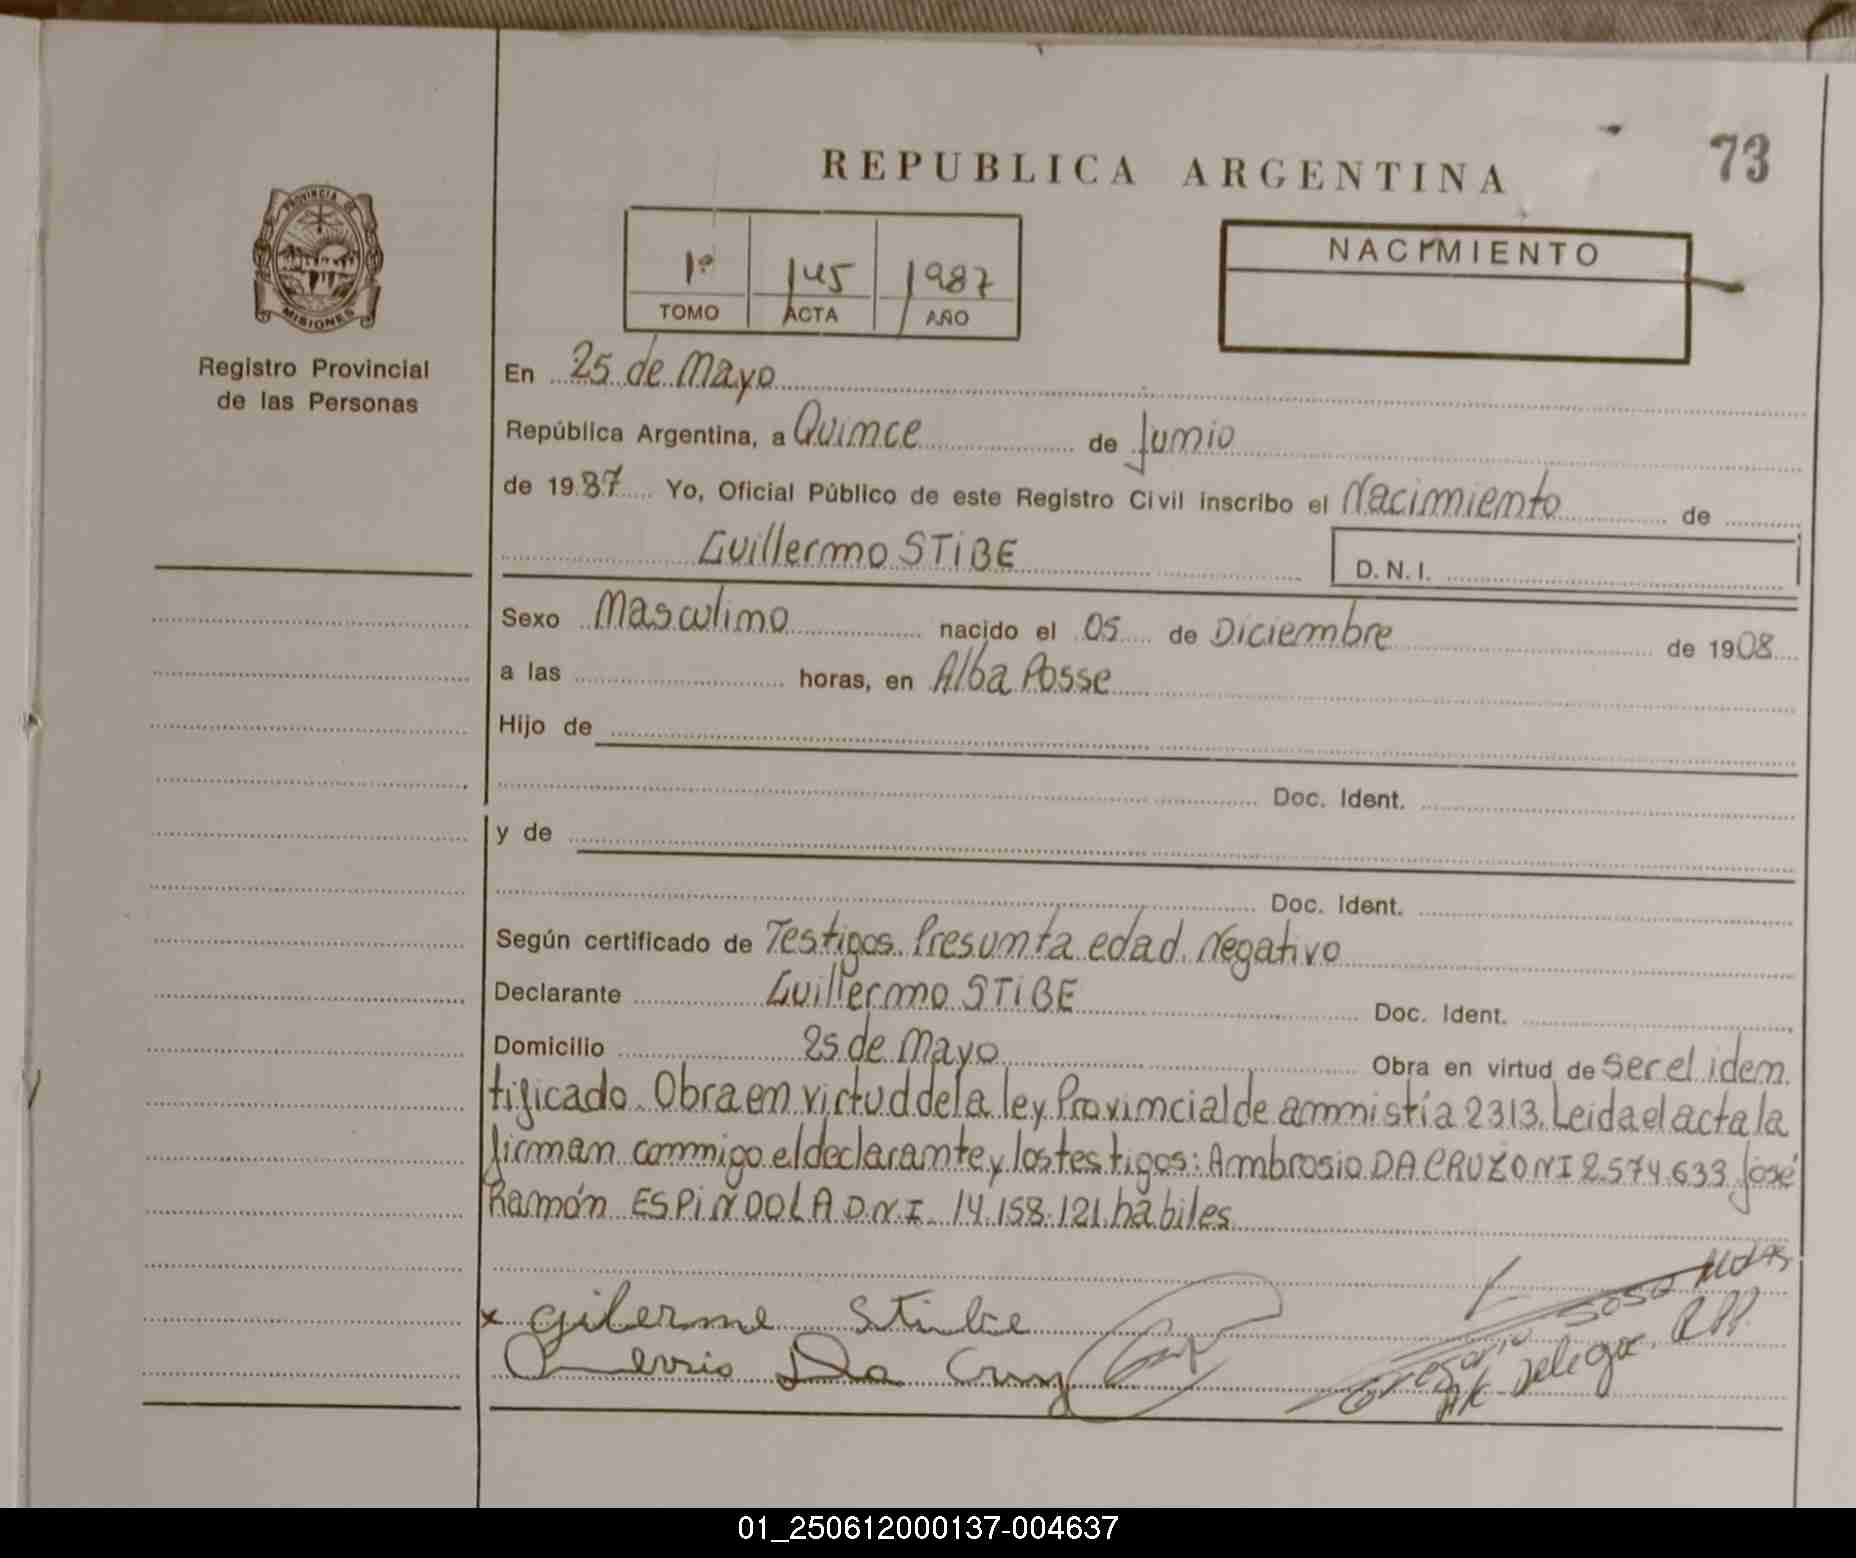 73
REPUBLICA ARGENTINA
PROVINCIA DE
MISIONES
Registro Provincial
de las Personas
1º 145 1987
TOMO ACTA AÑO
NACIMIENTO
En 25 de Mayo
República Argentina, a Quince de Junio
de 1987 Yo, Oficial Público de este Registro Civil inscribo el Nacimiento de
Guillermo STIBE D.N.I.
Sexo Masculino nacido el 05 de Diciembre de 1908
a las horas, en Alba Posse
Hijo de
Doc. Ident.
y de
Doc. Ident.
Según certificado de Testigos. Presunta edad. Negativo
Declarante Guillermo STIBE Doc. Ident.
Domicilio 25 de Mayo Obra en virtud de ser el iden
tificado. Obra en virtud de la ley Provincial de amnistía 2313. Leida el acta la
firman conmigo el declarante y los testigos: Ambrosio DA CRUZ DNI 2.574.633 José
Ramón ESPINDOLA D.N.I. 14.158.121 habiles
x Gilerme Stibe
Da Cruz
SOSA
Delega R.P.P.
01_250612000137-004637